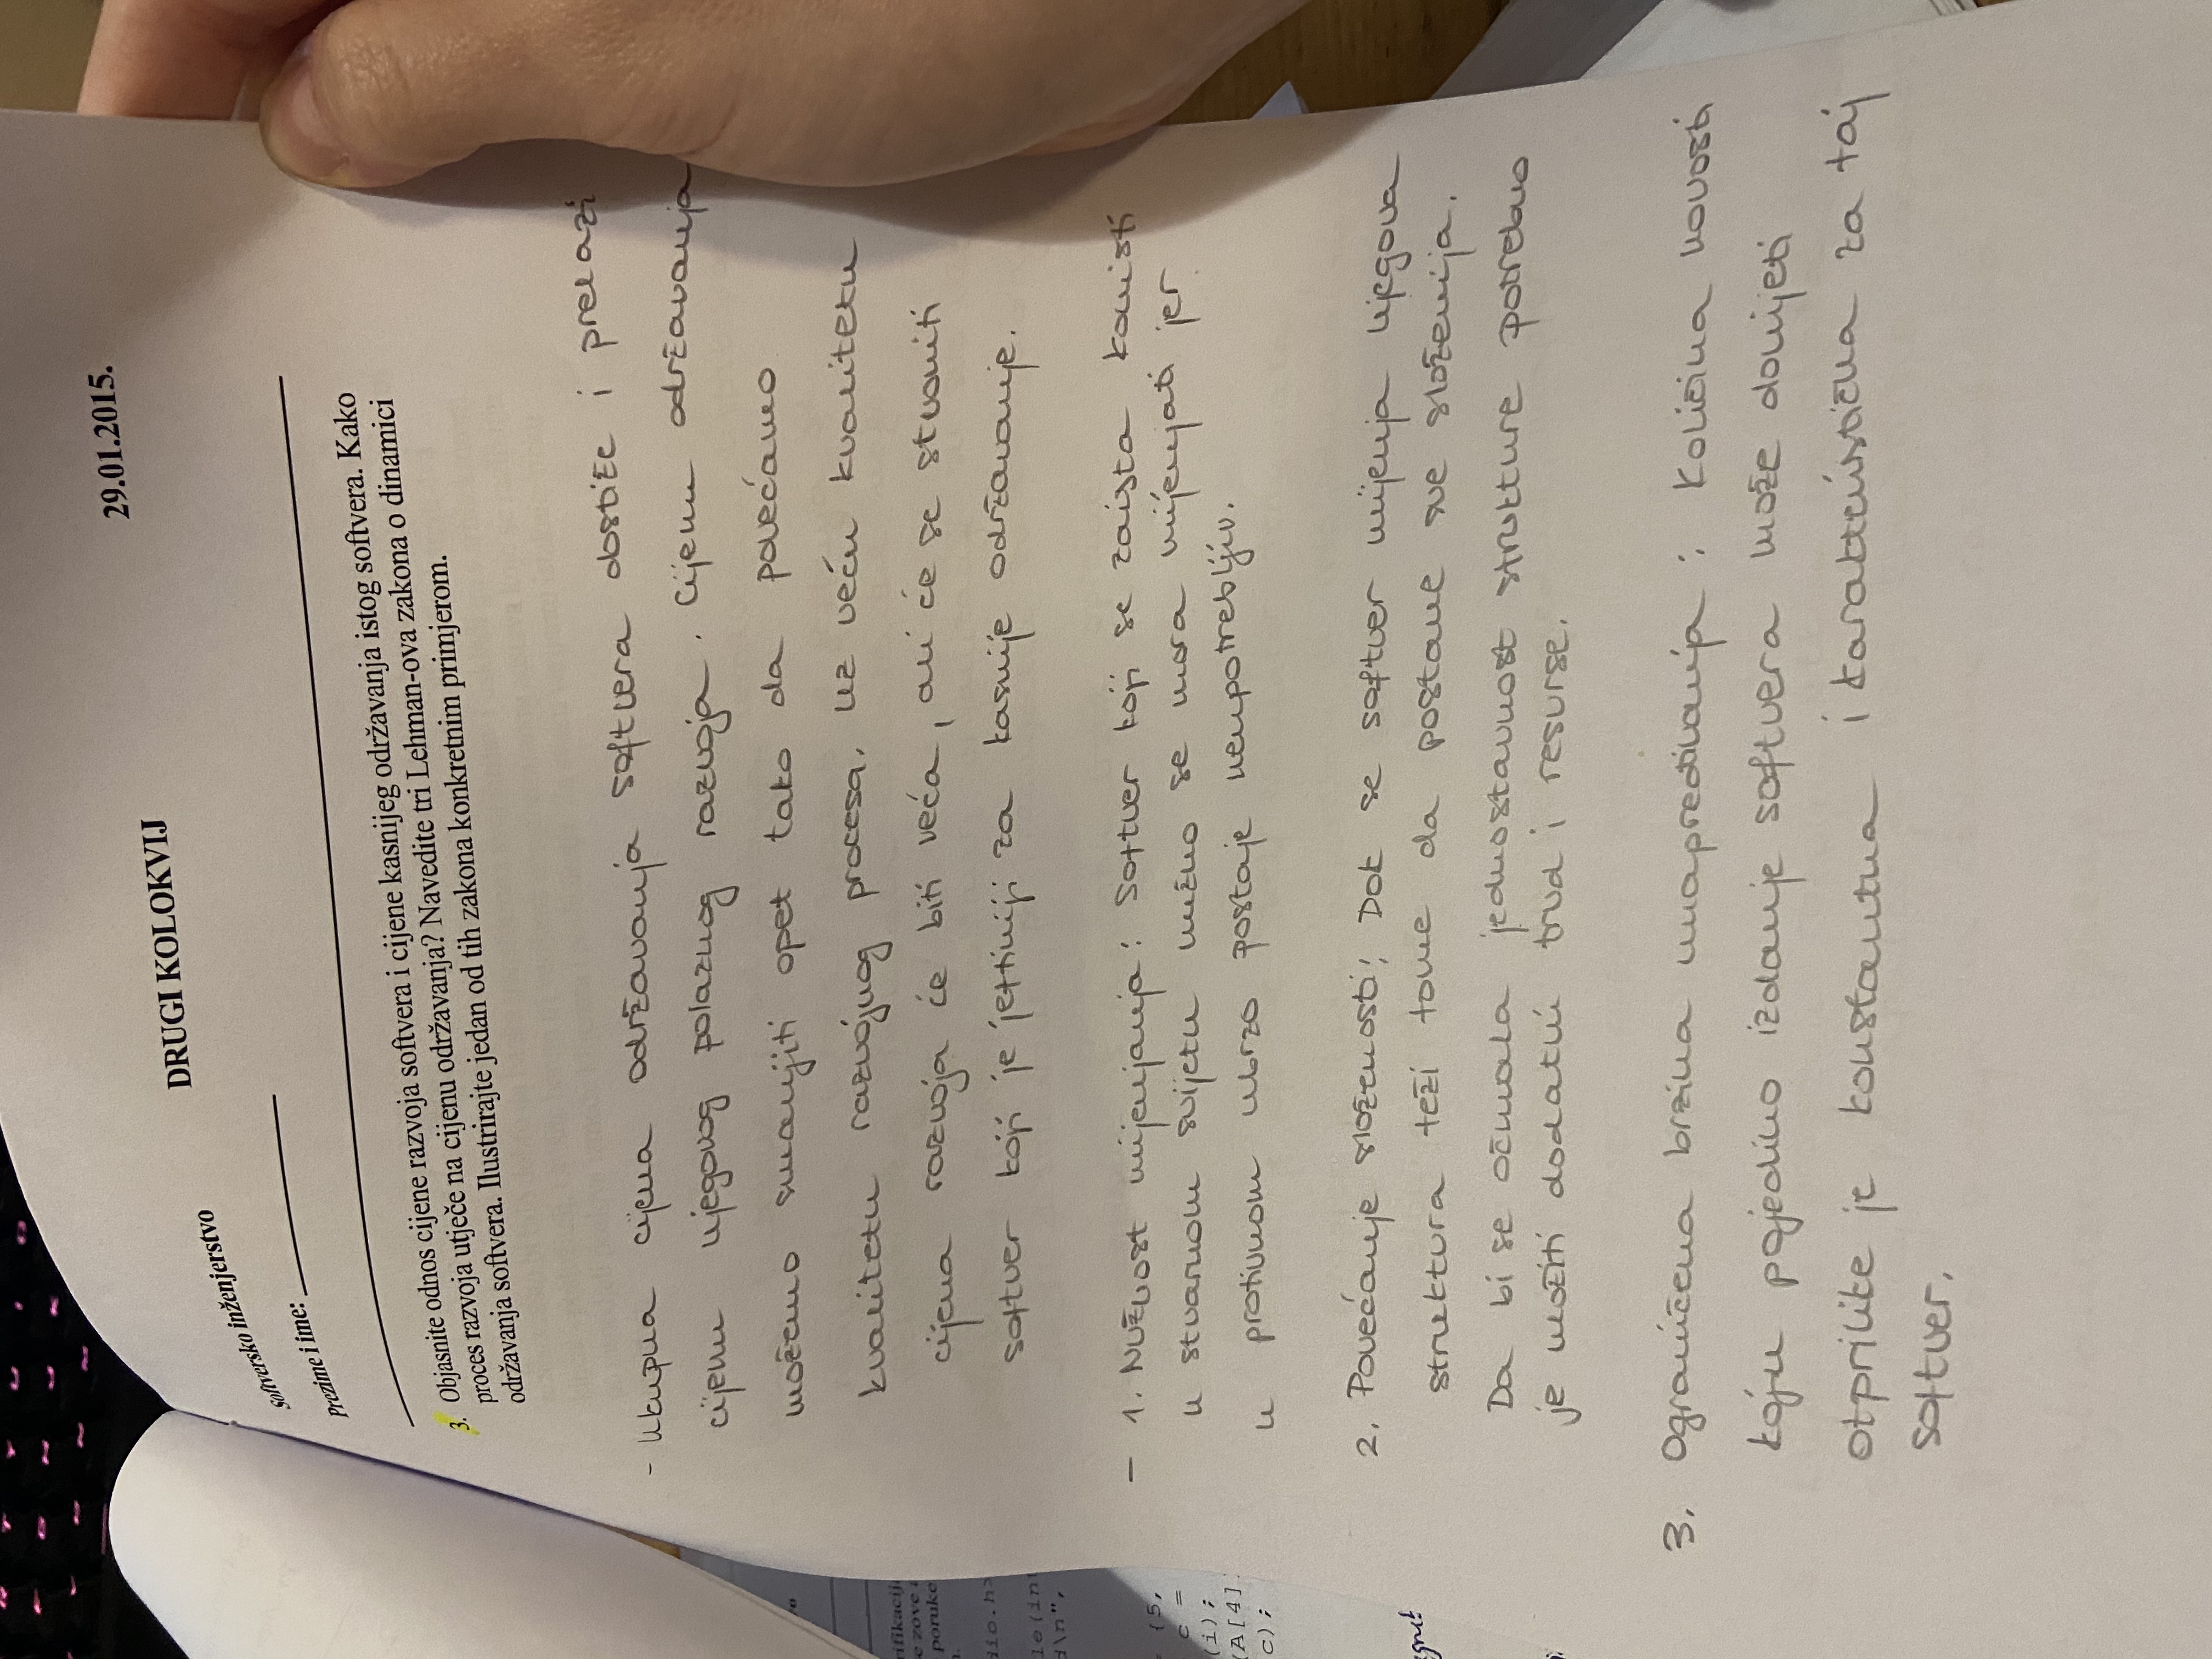 29.01.2015.
DRUGI KOLOKVIJ
Softversko inženjerstvo
Prezime i ime:
3. Objasnite odnos cijene razvoja softvera i cijene kasnijeg održavanja istog softvera. Kako
proces razvoja utječe na cijenu održavanja? Navedite tri Lehman-ova zakona o dinamici
održavanja softvera. Ilustrirajte jedan od tih zakona konkretnim primjerom.
- Ukupna cijena održavanja softvera dostiže i prelazi
cijenu njegovog polaznog razvoja. Cijenu održavanja
možemo smanjiti opet tako da povećamo
kvalitetu razvojnog procesa. Uz veću kvalitetu
cijena razvoja će biti veća, ali će se stvoriti
softver koji je jeftiniji za kasnije održavanje.
- 1. Nužnost mijenjanja: Softver koji se zaista koristi
u stvarnom svijetu nužno se mora mijenjati jer
u protivnom ubrzo postaje neupotrebljiv.
2. Povećanje složenosti: Dok se softver mijenja njegova
struktura teži tome da postane sve složenija.
Da bi se očuvala jednostavnost strukture potrebno
je uložiti dodatni trud i resurse.
3. Ograničena brzina unapređivanja: Količina novosti
koju pojedino izdanje softvera može donijeti
otprilike je konstantna i karakteristična za taj
softver.
rifikacij
e zove
poruke
dio.h>
le(int
d\n",
= {5,
c =
(i);
(A[4]
c);